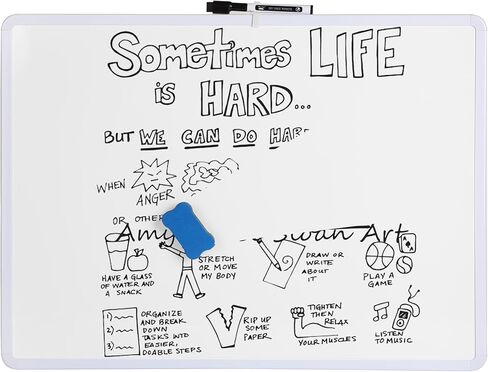 Sometimes LIFE
is HARD...
BUT WE CAN DO HAR
WHEN
ANGER
OR OTHER
Amy Swan Art
HAVE A GLASS
OF WATER AND
A SNACK
STRETCH
OR MOVE
MY BODY
DRAW OR
WRITE
ABOUT
IT
PLAY A
GAME
A
1)
2)
3)
ORGANIZE
AND BREAK
DOWN
TASKS INTO
EASIER,
DOABLE STEPS
RIP UP
SOME
PAPER
TIGHTEN
THEN
RELAX
YOUR MUSCLES
LISTEN
TO MUSIC